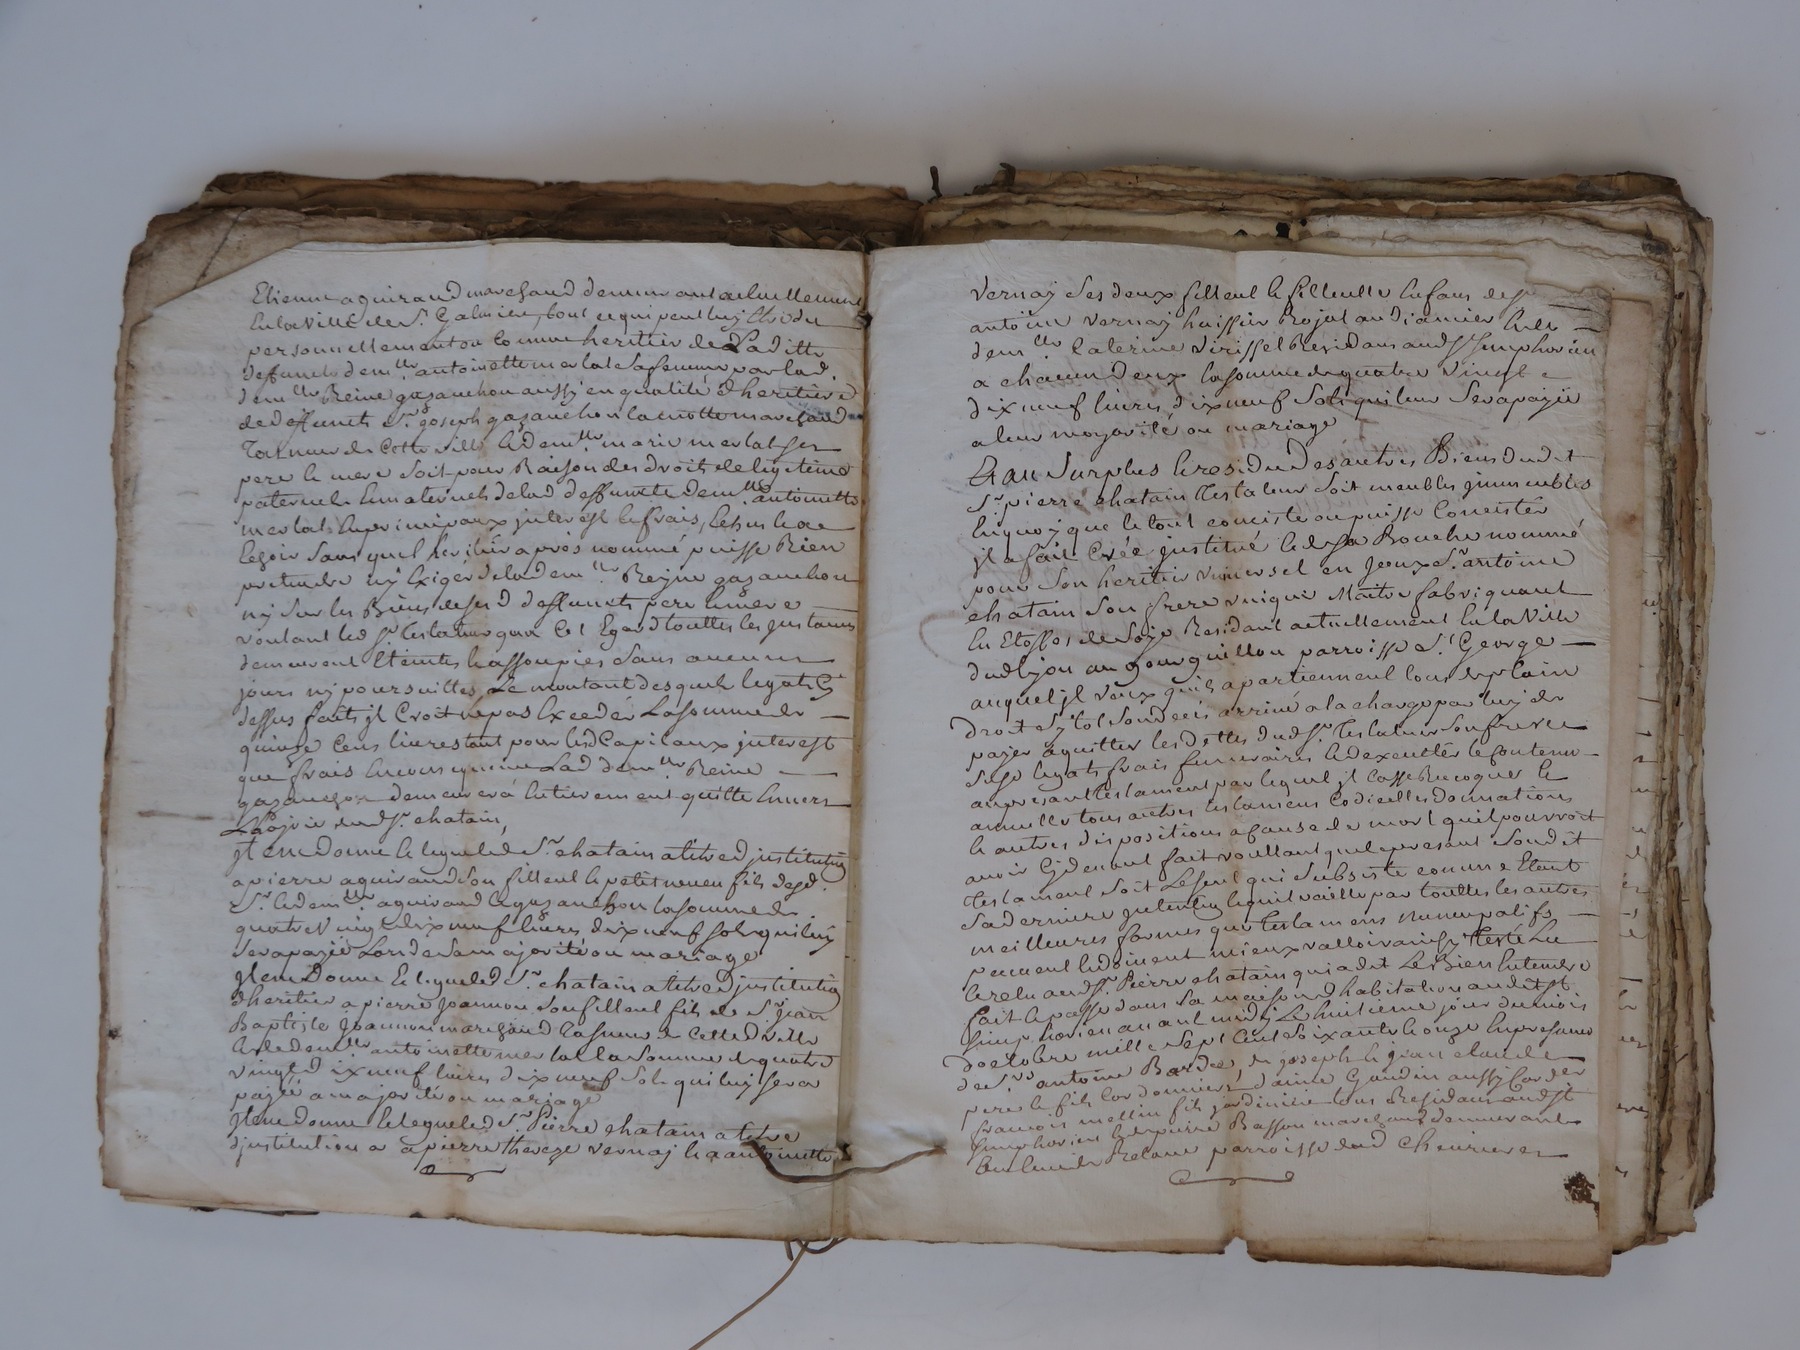 Etienne aguiraud marchand demeurant actuellement
en la ville de St. Galmier, tout ce qui peut luy être du
personnellement ou comme heritier de Laditte
deffunte demlle. antoinette merlat sa femme par lad.
demlle Reine gazanchon aussy en qualité d'heritiere
de deffuncts Sr. joseph gazanchon lacrotte marchand
Tanneur de cette ville et demlle marie merlat ses
pere et mere soit pour Raison des droits de legitime
paternels et maternels de lad deffuncte demlle antoinette
merlat en principaux interest et frais, sans que
heritier après nommé puisse Rien
pretendre ny Exiger de lad demlle. Reyne gazanchon
ny sur les Biens de sesd deffuncts pere et mere
voulant led Sr. testateur qu'a cet Egard touttes les instances
demeurent Eteintes et assoupies sans aucunes
ny poursuittes, Le montant desquels legats cy
dessus faits jl croit ne pas Exceder La somme de
quinze cens livres tant pour lesd capitaux interest
que frais au moyen de quoy Lad demlle Reine
gazanchon demeurera entierement quitte envers
L'hoirie dud Sr. chatain,
Jtem donne et legue led Sr. chatain a titre d'jnstitution
a pierre aguiraud son filleul et petit neveu fils desd.
Sr. et demlle aguiraud et gazanchon la somme de
quatre vingt dix neuf livres dix neuf sols qui luy
sera payée Lors de sa majorité ou mariage
Jtem Donne et legue led Sr. chatain a titre d'jnstitution
d'heritier a pierre Joannon son filleul fils de Sr. jean
Baptiste Joannon marchand Tanneur de cette d ville
et de demlle antoinette merlat la somme de quatre
vingt dix neuf livres dix neuf sols qui luy sera
payée a majorité ou mariage
Jtem donne et legue led Sr Pierre chatain a titre
d'jnstitution a pierre thereze vernay et a antoinette
vernay ses deux filleul et filleulle enfans de
antoine vernay huissier Royal audiancier et de
demlle catérine virissel Residans aud St. Simphorien
a chacun deux la somme de quatre vingt
dix neuf livres, dix neuf sols qui leur sera payée
a leur mayorité, ou mariage
Et au surplus et residu des autres Biens dudit
Sr. pierre chatain testateur soit meubles jmmeubles
en quoy que le tout conciste ou puisse concister
jl a fait créé jnstitué et de sa Bouche nommé
pour son heritier universel en jceux Sr. antoine
chatain son frere unique Maitre fabriquant
En Etoffes de soye Residant actuellement en la ville
dud lyon au gourguillon parroisse St. George
auquel jl veux qu'ils apartiennent tous de plain
droit sytot son deceis arrivé a la charge par luy de
payer aquitter les dettes dud Sr. testateur son frere
legats frais funeraires et d'executer le contenu
au present testament par lequel jl casse Revoque et
annulle tous autres testamens codicilles donnations
et autres dispositions a cause de mort qu'il pourroit
avoir cy devant fait voullant que le present sondit
testament soit Le seul qui subsiste comme Etant
sa derniere jntention et qu'il vaille par touttes les autres
meilleures formes que testamens nuncupatifs
peuvent et doivent mieux valloir ainsy testé Lu
et relu aud Sr. Pierre chatain qui a dit Le Bien Entendre
fait et passé dans sa maison d'habitation audit St
Simphorien avant midy Le huitieme jour du mois
d'octobre mille sept cent soixante et onze en presence
de Srs antoine Barde, joseph et jean claude
pere et fils cordonniers Gaudin aussy
francois mellin fils jardinier tous Residans aud St
Simphorien et Basson marchand demeurant
au lieu de parroisse dud chevrieres